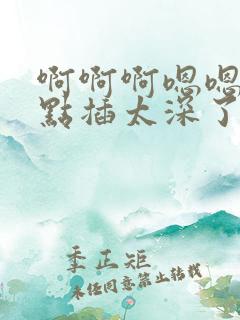 啊啊啊嗯嗯
點插太深了
季正矩
未经同意禁止转载